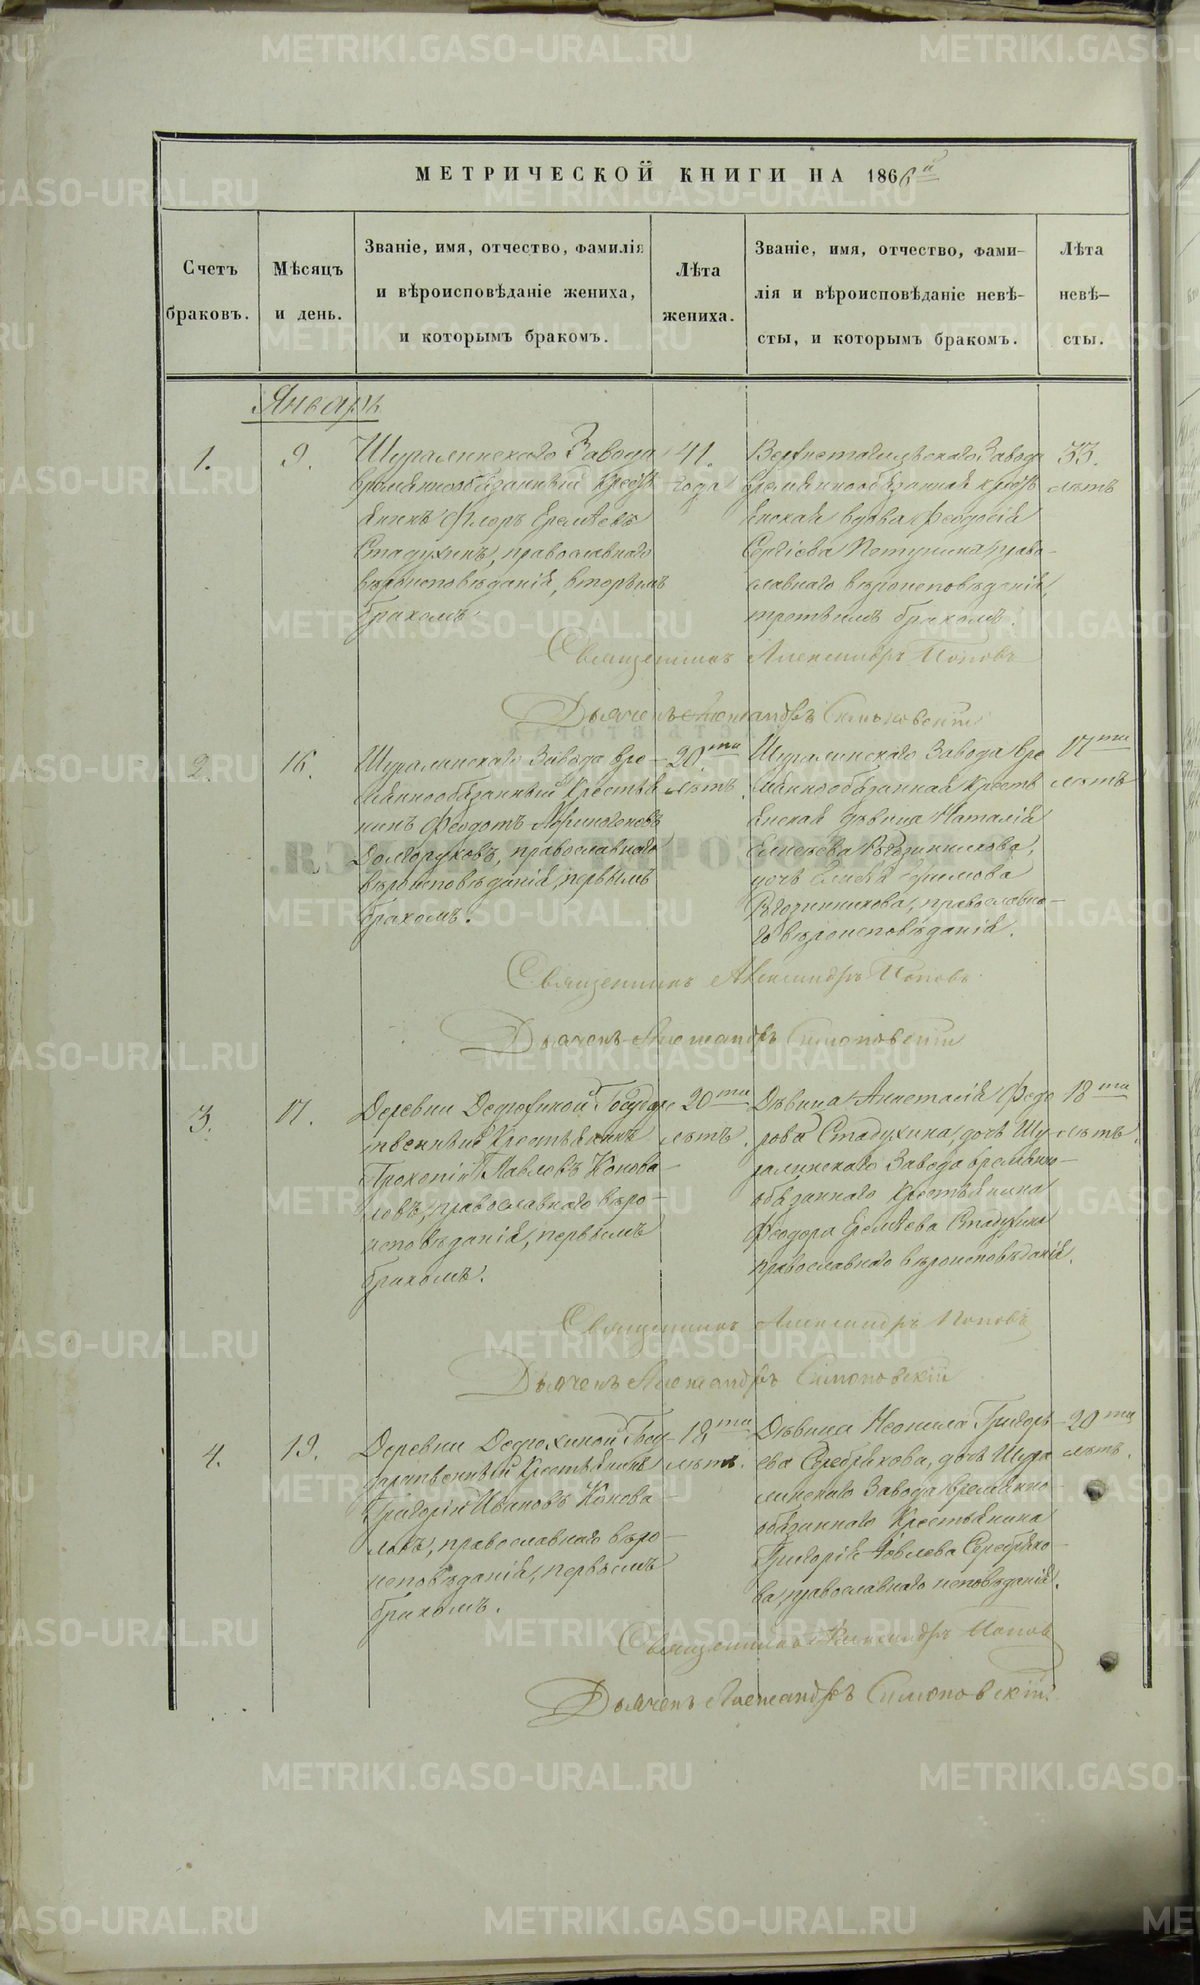 МЕТРИЧЕСКОЙ КНИГИ НА 1866й
Счетъ браковъ.
Мѣсяцъ и день.
Званіе, имя, отчество, фамилія
и вѣроисповѣданіе жениха,
и которымъ бракомъ.
Лѣта жениха.
Званіе, имя, отчество, фами-
лія и вѣроисповѣданіе невѣ-
сты, и которымъ бракомъ.
Лѣта невѣ-
сты.
Январь
1.
9.
Шуралинскаго Завода
временнообязанный крестья
янинъ Флоръ Еремѣевъ
Стадухинъ, православнаго
вѣроисповѣданія, вторымъ
бракомъ.
41.
года
Верхнетагильскаго Завода
временнообязанная кресть
янская вдова Феодосія
Сергіева Петушина, право-
славнаго вѣроисповѣданія,
третьимъ бракомъ.
33.
лѣтъ
Священникъ Александръ Поповъ
Дьячекъ Александръ Симоновскій
2.
16.
Шуралинскаго Завода вре-
меннообязанный Крестья
нинъ Феодотъ
Долгоруковъ, православнаго
вѣроисповѣданія, первымъ
бракомъ.
20ти
лѣтъ.
Шуралинскаго Завода вре
меннообязанная кресть
янская дѣвица Наталія
Елисѣева
дочь Елисѣя Ефимова
православна-
го вѣроисповѣданія.
17ти
лѣтъ
Священникъ Александръ Поповъ
Дьячекъ Александръ Симоновскій
3.
17.
Деревни Дедюхиной Государс
твенный Крестьянинъ
Прокопій Павловъ Конова-
ловъ, православнаго вѣро-
исповѣданія, первымъ
бракомъ.
20ти
лѣтъ.
Дѣвица Анастасія Федо
рова Стадухина, дочь Шу-
ралинскаго Завода временно-
обязаннаго крестьянина
Феодора Еремѣева Стадухина
православнаго вѣроисповѣданія.
18ти
лѣтъ.
Священникъ Александръ Поповъ
Дьячекъ Александръ Симоновскій
4.
19.
Деревни Дедюхиной Госу-
дарственный Крестьянинъ
Григорій Ивановъ Конова-
ловъ, православнаго вѣро-
исповѣданія, первымъ
бракомъ.
18ти
лѣтъ.
Дѣвица Неонила Григорь
ева Серебрякова, дочь Шура
линскаго Завода временно-
обязаннаго Крестьянина
Григорія Яковлева Серебряко-
ва, православнаго исповѣданія.
20ти
лѣтъ.
Священникъ Александръ Поповъ
Дьячекъ Александръ Симоновскій
METRIKI.GASO-URAL.RU